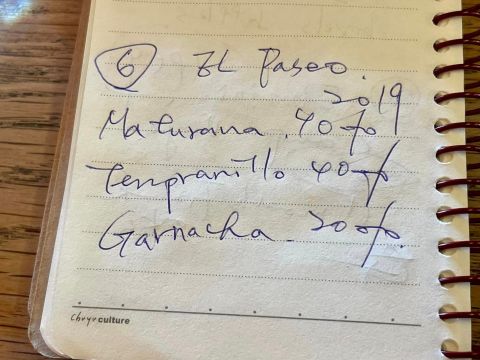 6 EL Paseo.
2019
Maturana. 40%
Tempranillo 40%
Garnacha. 20%.
Chuyu culture